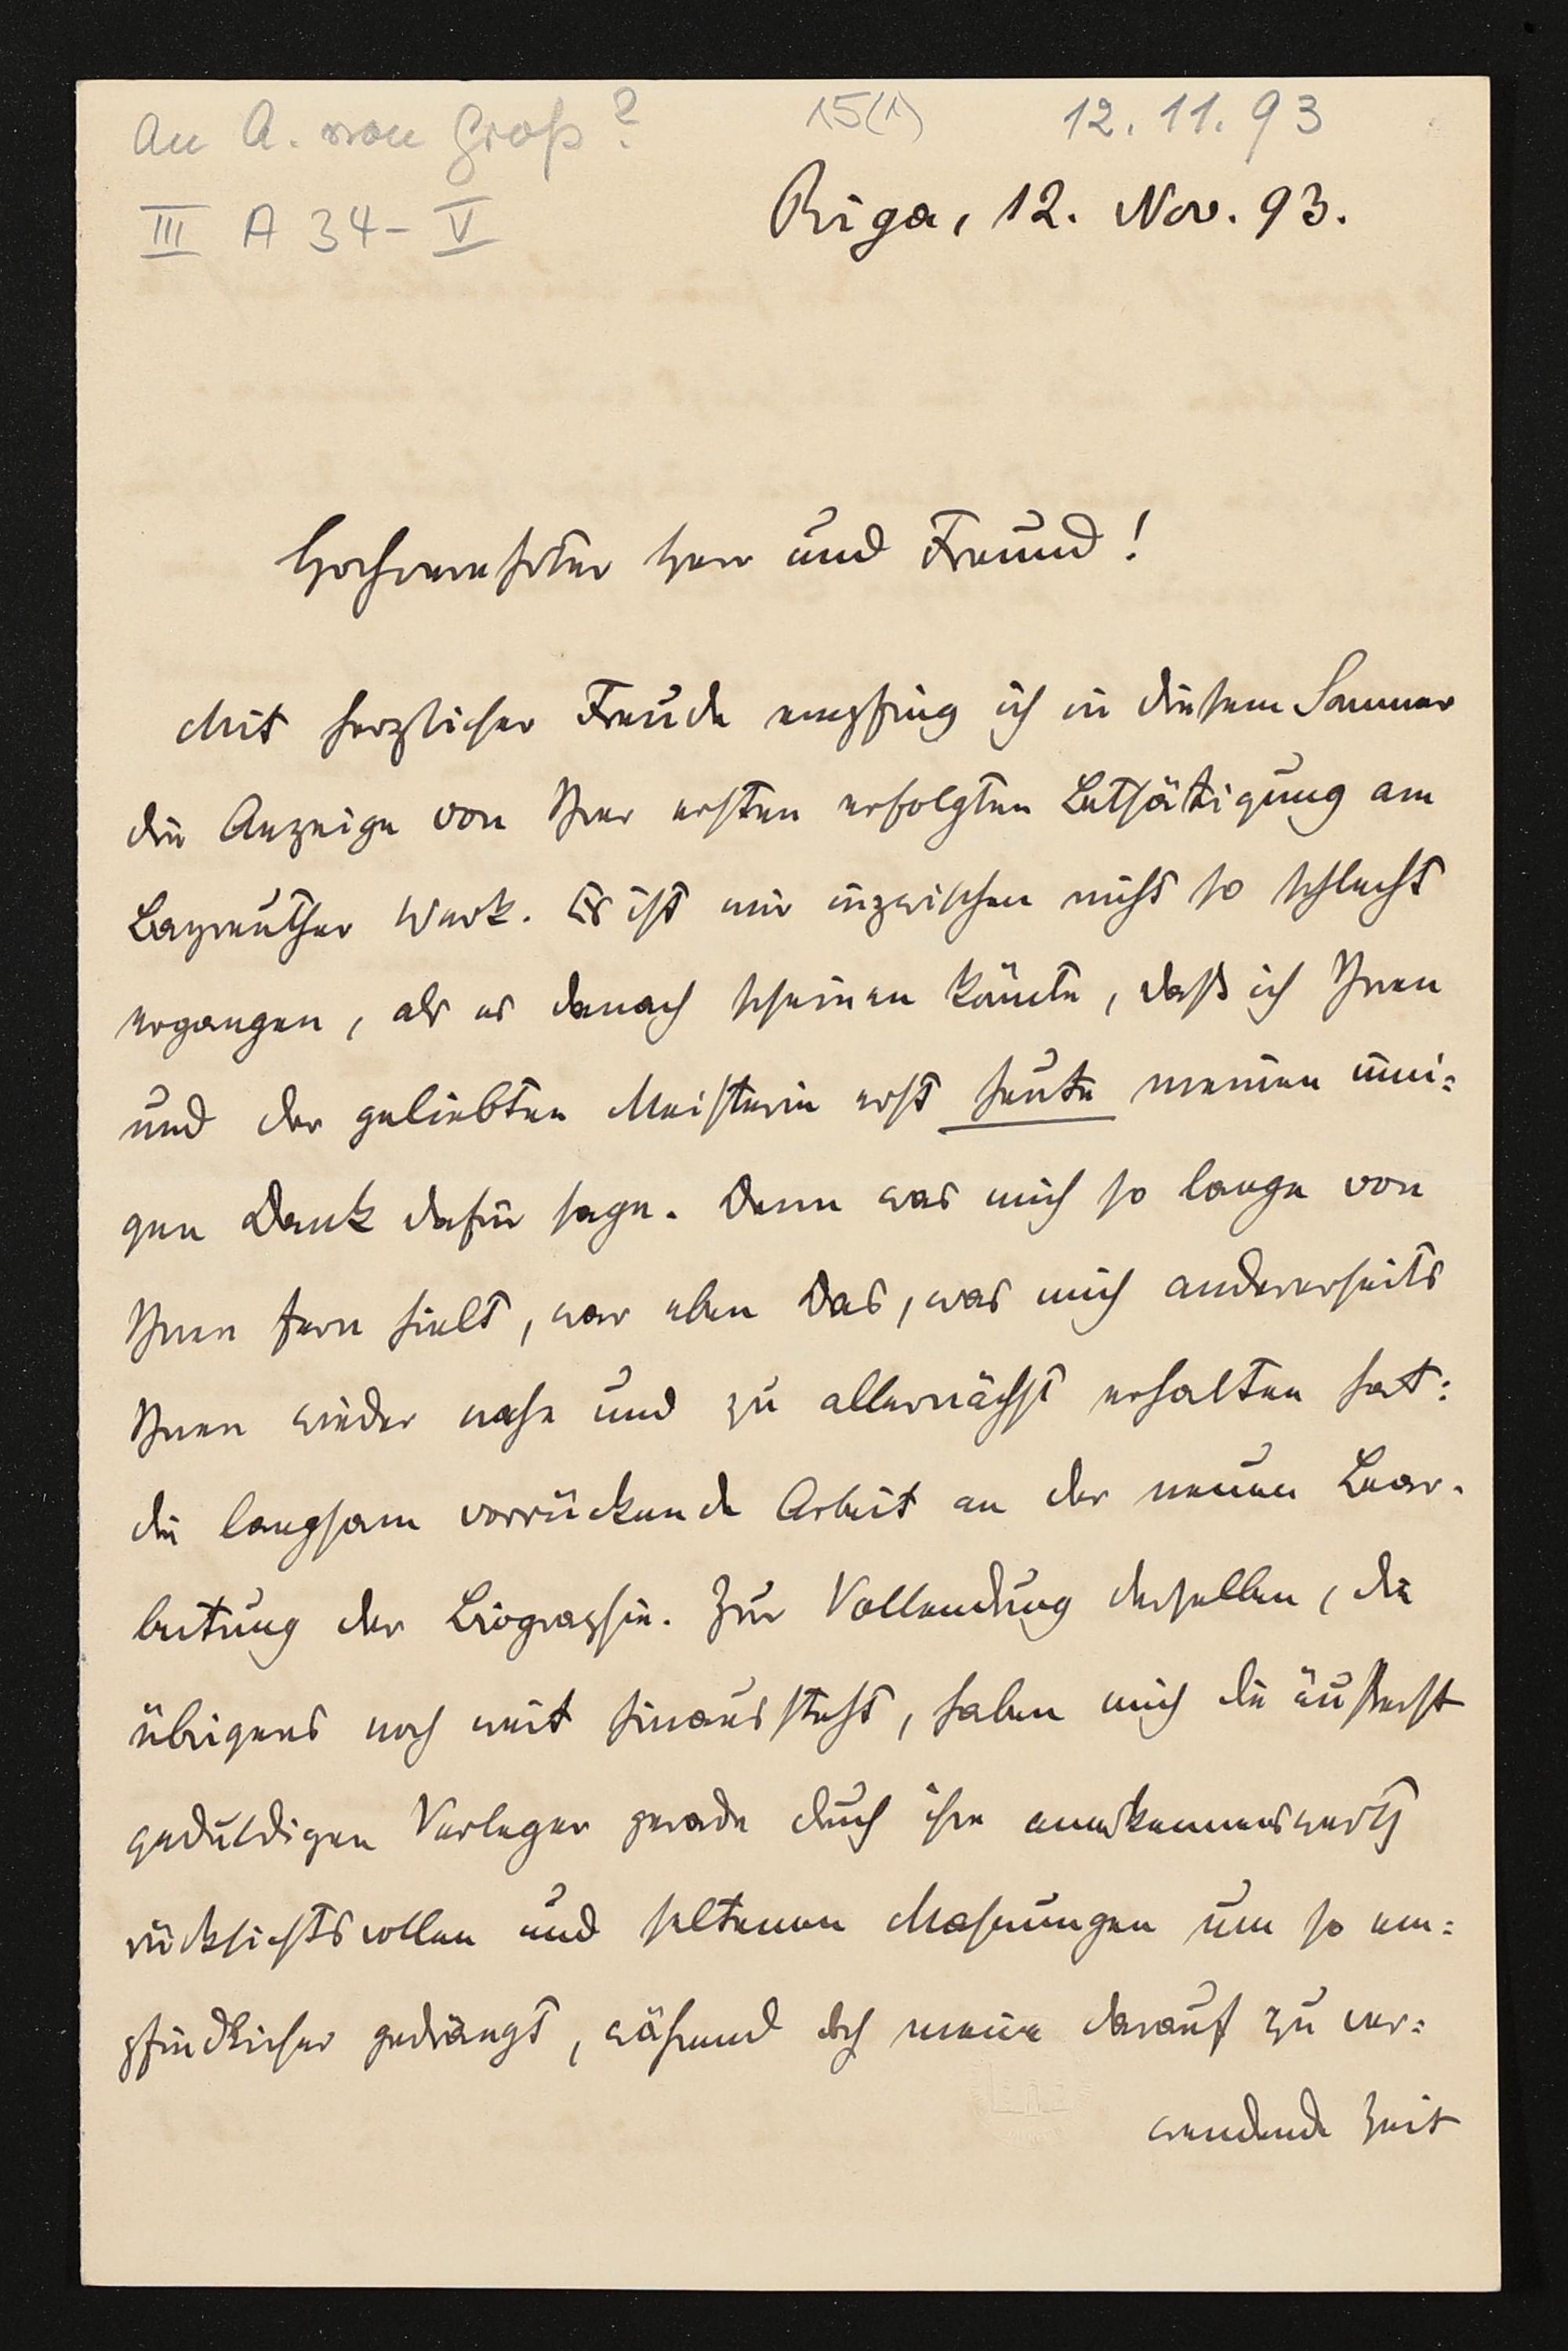 An A. von Groß?
15(1)
12.11.93
III A 34-V
Riga, 12. Nov. 93.
Hochverehrter Herr und Freund!
Mit herzlicher Freude empfing ich in diesem Sommer
die Anzeige von Ihrer ersten erfolgten Bethätigung am
Bayreuther Werk. Es ist mir inzwischen nicht so schlecht
ergangen, als es danach scheinen könnte, daß ich Ihnen
und der geliebten Meisterin erst heute meinen inni=
gen Dank dafür sage. Denn was mich so lange von
Ihnen fern hielt, war eben Das, was mich andererseits
Ihnen wieder nahe und zu allernächst erhalten hat:
die langsam vorrückende Arbeit an der neuen Bear-
beitung der Biographie. Zur Vollendung derselben, die
übrigens noch weit hinaus steht, haben mich die äußerst
geduldigen Verleger gerade durch ihre anerkennenswerth
rücksichtsvollen und seltenen Mahnungen um so em=
pfindlicher gedrängt, während doch meine darauf zu ver=
wendende Zeit